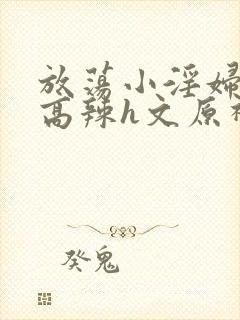 放荡小淫婦
高辣h文原
癸鬼